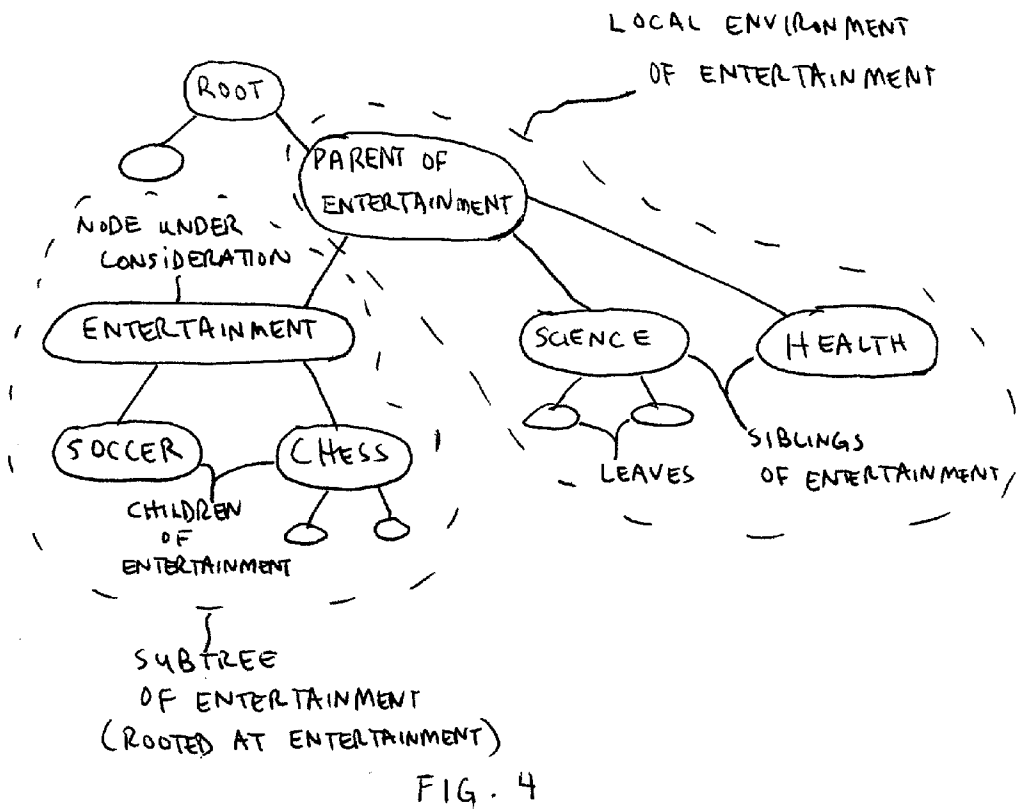 LOCAL ENVIRONMENT
OF ENTERTAINMENT
ROOT
PARENT OF
ENTERTAINMENT
NODE UNDER
CONSIDERATION
ENTERTAINMENT
SCIENCE
HEALTH
SOCCER
CHESS
LEAVES
SIBLINGS
OF ENTERTAINMENT
CHILDREN
OF
ENTERTAINMENT
SUBTREE
OF ENTERTAINMENT
(ROOTED AT ENTERTAINMENT)
FIG. 4